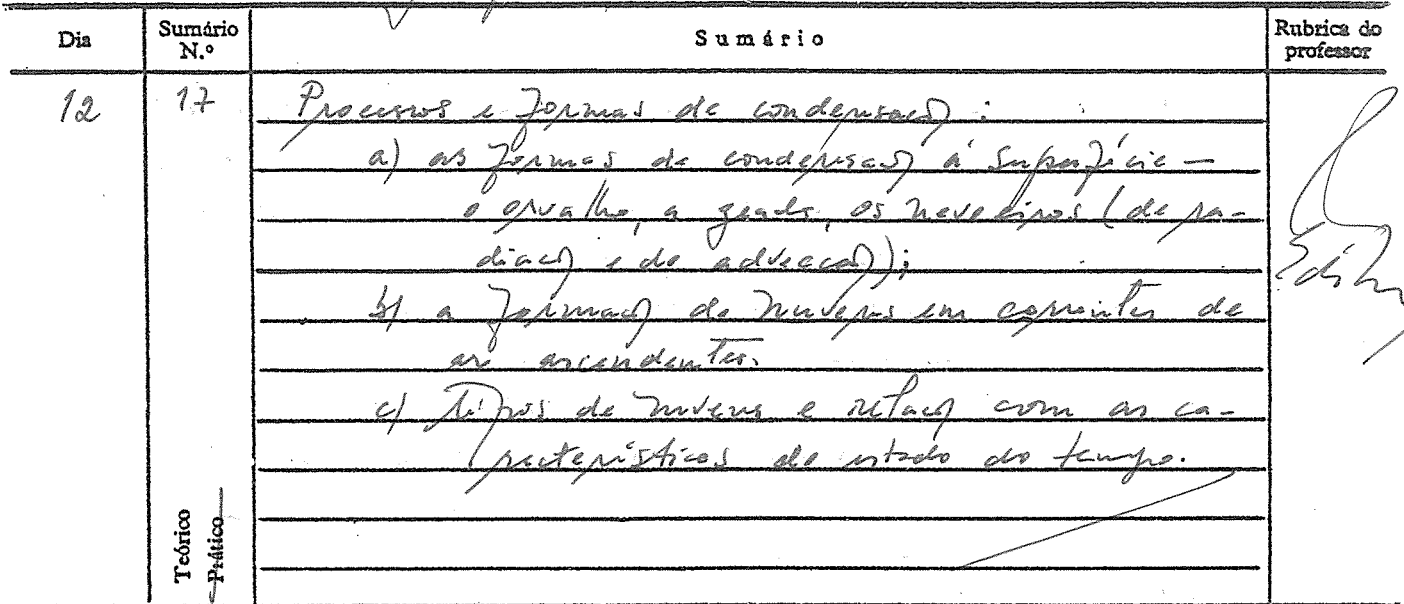 Dia Sumário N.º Sumário Rubrica do professor
12 17 Processos e formas de condensação:
a) as formas de condensação à superfície —
o orvalho, a geada, os nevoeiros (de ra-
diação e de advecção);
b) a formação de nuvens em correntes de
ar ascendentes.
c) tipos de nuvens e relação com as ca-
racterísticas do estado do tempo.
Teórico
Prático